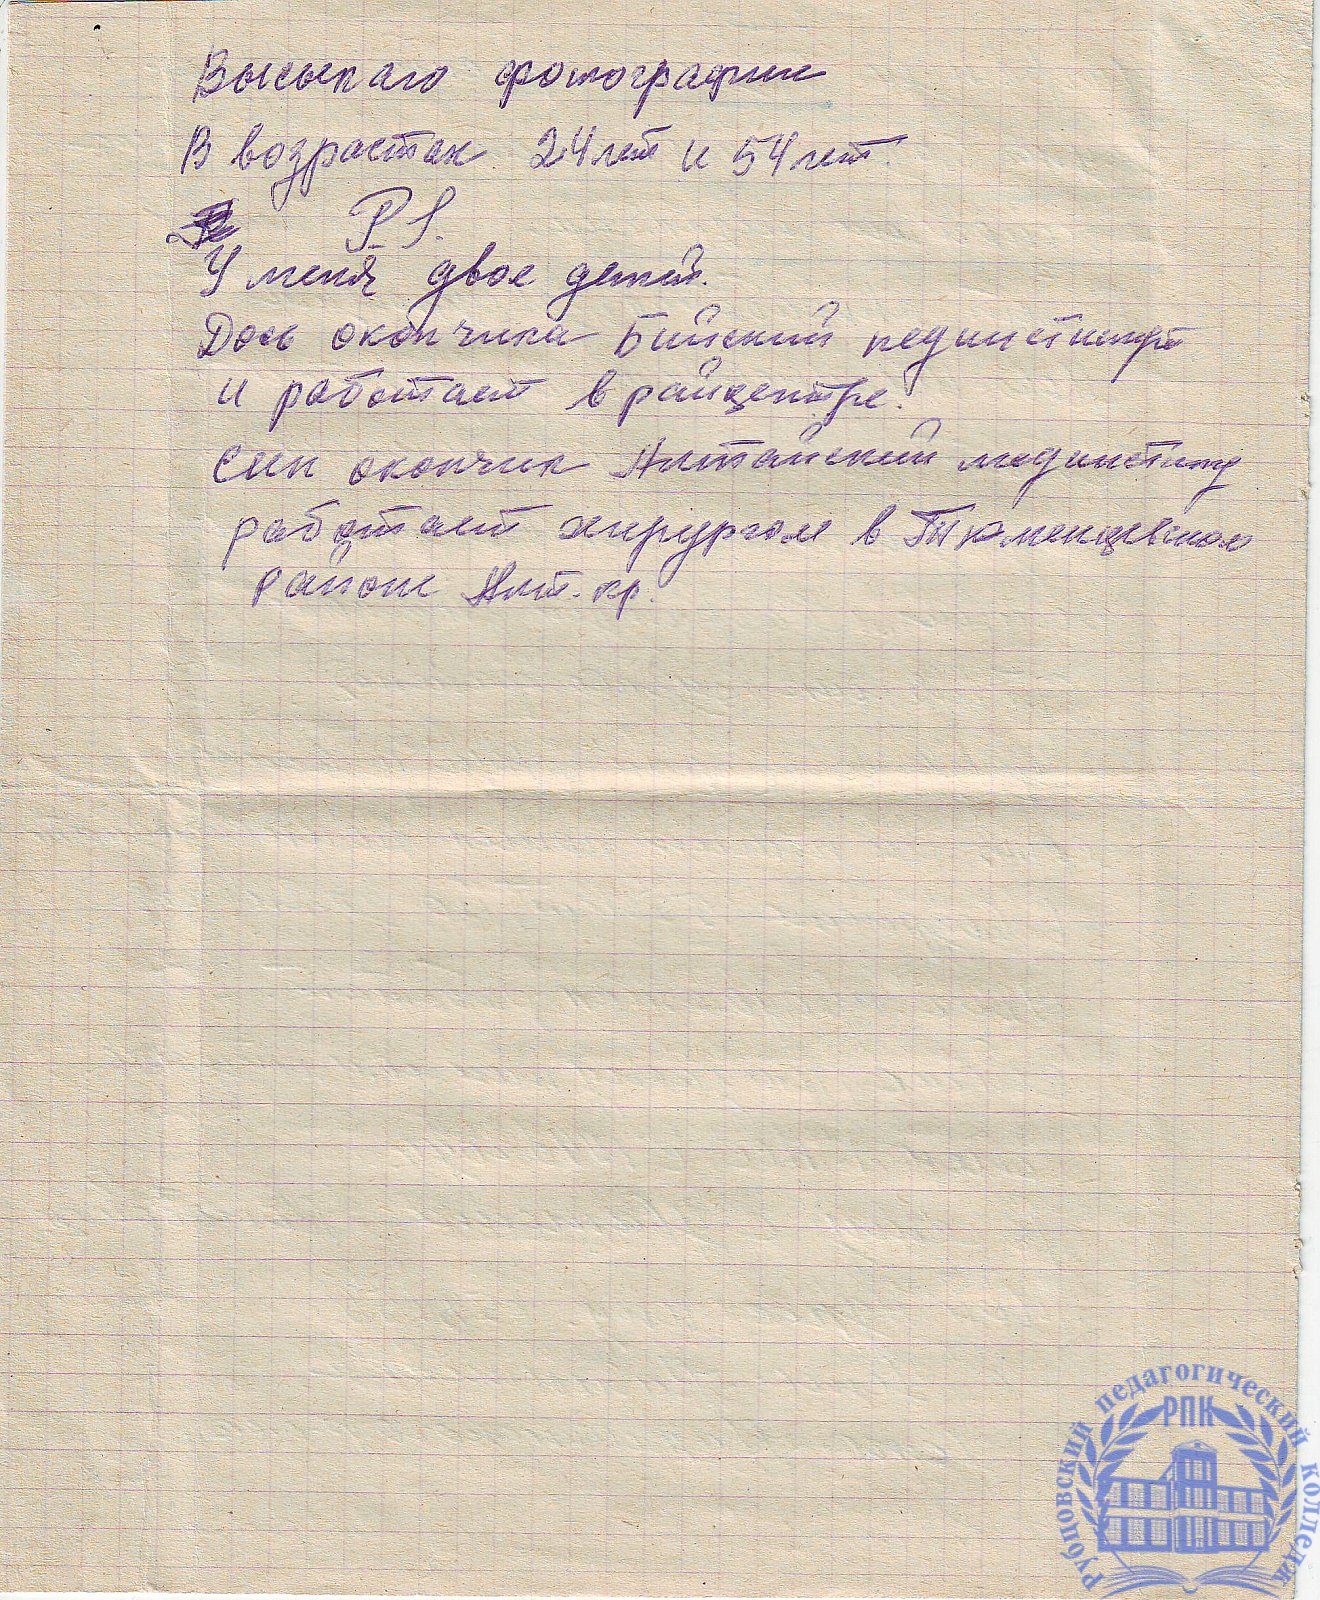 Высылаю фотографии
В возрастах 24 лет и 54 лет.
P.S.
У меня двое детей.
Дочь окончила Бийский пединститут
и работает в райцентре.
Сын окончил Алтайский мединститут
работает хирургом в Тюменцевском
районе Алт. кр.
Рубцовский педагогический колледж
РПК